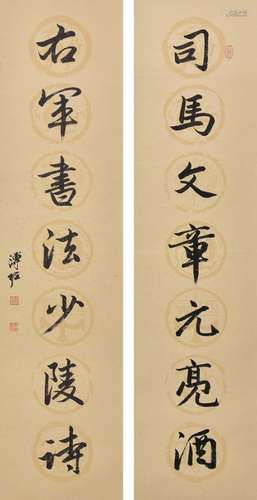 司馬文章元亮酒
右軍書法少陵詩
溥佐